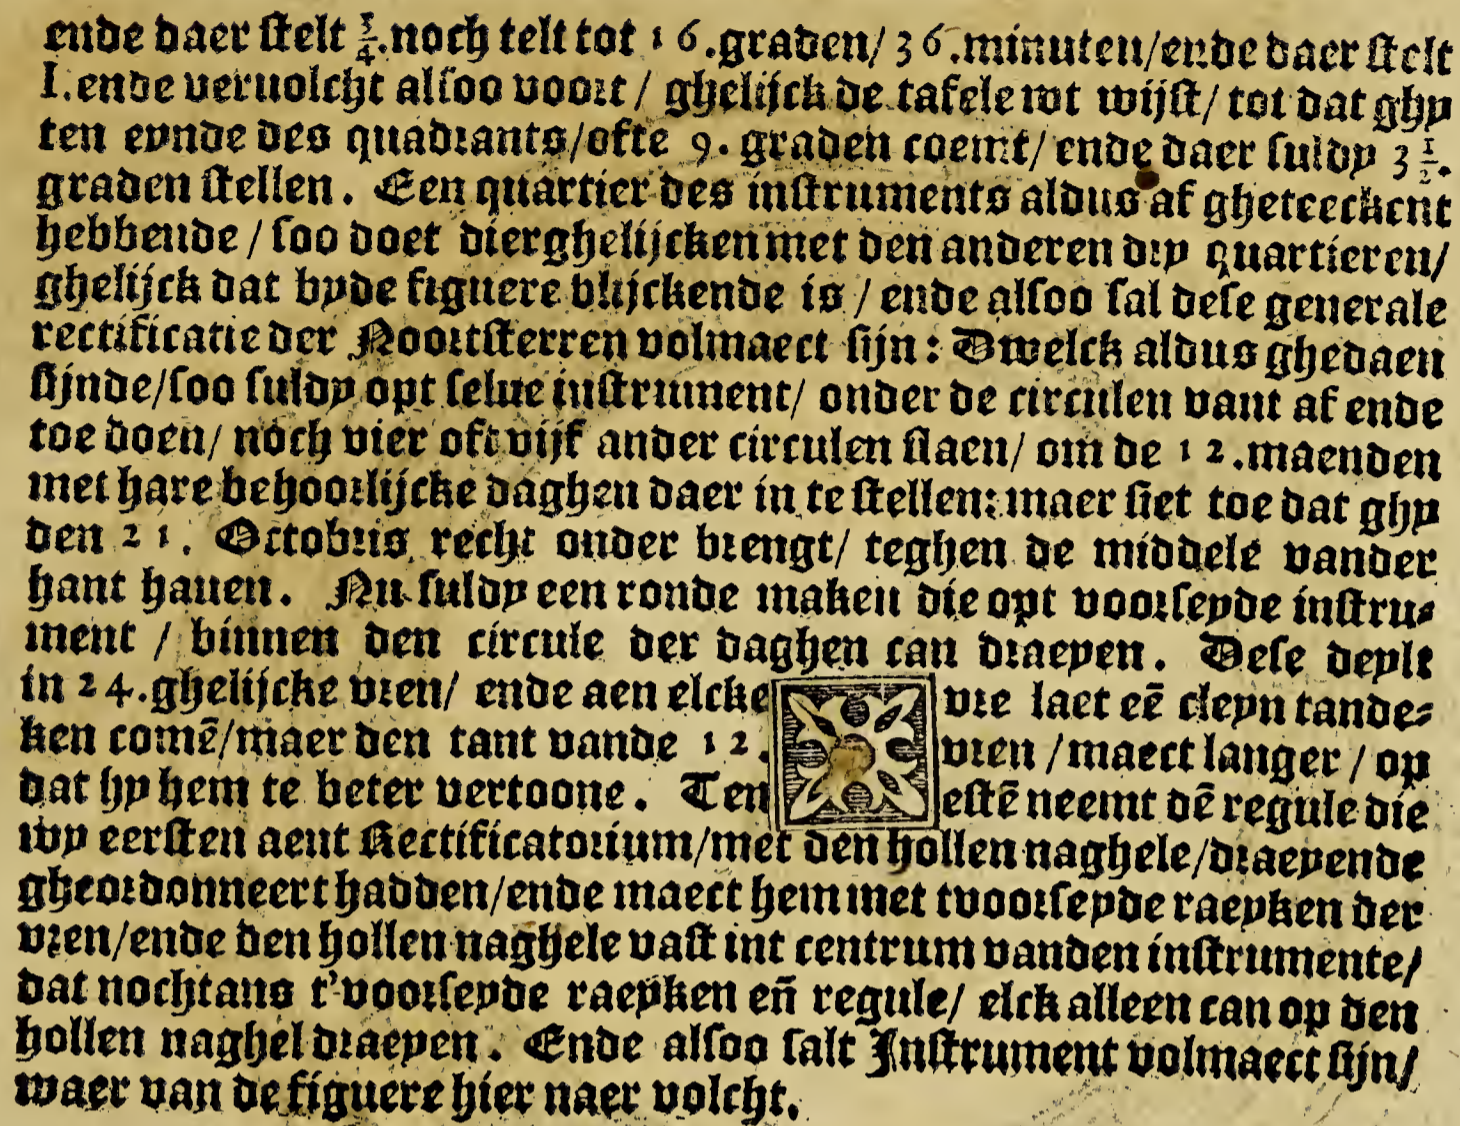 ende daer stelt 3/4. noch telt tot 16. graden/ 36. minuten/ende daer stelt
I. ende veruolcht alsoo voort / ghelijck de tafele wt wijst/ tot dat ghy
ten eynde des quadrants/ofte 9. graden coemt/ ende daer suldy 3 1/2.
graden stellen. Een quartier des instruments aldus af gheteeckent
hebbende / soo doet dierghelijcken met den anderen dry quartieren/
ghelijck dat byde figuere blijckende is / ende alsoo sal dese generale
rectificatie der Noortsterren volmaect sijn: Dwelck aldus ghedaen
sijnde/soo suldy opt selue instrument/ onder de circulen vant af ende
toe doen/ noch vier oft vijf ander circulen slaen/ om de 12. maenden
met hare behoorlijcke daghen daer in te stellen: maer siet toe dat ghy
den 21. Octobris recht onder brengt/ teghen de middele vander
hant hauen. Nu suldy een ronde maken die opt voorseyde instru-
ment / binnen den circule der daghen can draeyen. Dese deylt
in 24. ghelijcke vren/ ende aen elcke vre laet eē cleyn tande-
ken comē/maer den tant vande 12. vren / maect langer / op
dat hy hem te beter vertoone. Ten estē neemt dē regule die
wy eersten aent Rectificatorium/met den hollen naghele/draeyende
gheordonneert hadden/ende maect hem met tvoorseyde raeyken der
vren/ende den hollen naghele vast int centrum vanden instrumente/
dat nochtans t'voorseyde raeyken eñ regule/ elck alleen can op den
hollen naghel draeyen. Ende alsoo salt Instrument volmaect sijn/
waer van de figuere hier naer volcht.